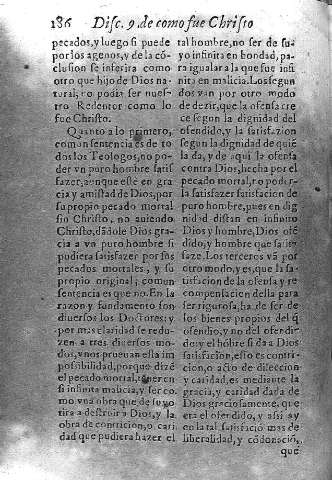 186 Disc. 9. de como fue Christo
pecados, y luego si puede
por los agenos, y de la cõ
clusion se inferira como
otro que hijo de Dios na
tural, no podia ser nuestro
Redentor como lo
fue Christo.
Quanto a lo primero,
comun sentencia es de to
dos los Teologos, no po-
der vn puro hombre satis
fazer, aunque esté en gra-
cia y amistad de Dios, por
su propio pecado mortal
sin Christo, no auiendo
Christo, dãdole Dios gra-
cia a vn puro hombre si
pudiera satisfazer por sus
pecados mortales, y su
propio original, comun
sentencia es que no. En la
razon y fundamento son
diuersos los Doctores: y
por mas claridad se redu-
zen a tres diuersos mo-
dos, vnos prueuan esta im
possibilidad, porque dizẽ
el pecado mortal, tener en
si infinita malicia, y ser co
mo vna obra que de suyo
tira a destruir a Dios, y la
obra de contricion, o cari
dad que pudiera hazer el
tal hombre, no ser de su-
yo infinita en bondad, pa-
ra igualar a la que fue infi
nita en malicia. Los segun
dos van por otro modo
de dezir, que la ofensa cre
ce segun la dignidad del
ofendido, y la satisfazion
segun la dignidad de quiẽ
la da, y de aqui la ofensa
contra Dios, hecha por el
pecado mortal, no podr-
la satisfazer satisfacion de
puro hombre, pues en dig
nidad distan en infinito
Dios y hombre, Dios ofẽ
dido, y hombre que satis-
faze. Los terceros vã por
otro modo, y es, que la sa-
tisfacion de la ofensa y re
compensacion della para
ser rigurosa, ha de ser de
los bienes propios del q̃
ofendio, y no del ofendi-
do: y el hõbre si da a Dios
satisfacion, esto es contri-
cion, o acto de dileccion
y caridad, es mediante la
gracia, y caridad dada de
Dios graciosamente, que
era el ofendido, y assi ay
en la tal satisfació mas de
liberalidad, y cõdonació,
que